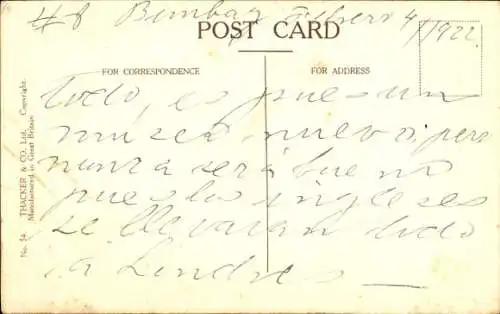 #8 Bombay Febrero 4/1922
POST CARD
FOR CORRESPONDENCE
FOR ADDRESS
Todo, es pues un
museo nuevo, pero
nunca será bueno
pues los ingleses
se llevaran todo
a Londres —
THACKER & CO., Ltd., Copyright.
Manufactured in Great Britain
No. 54